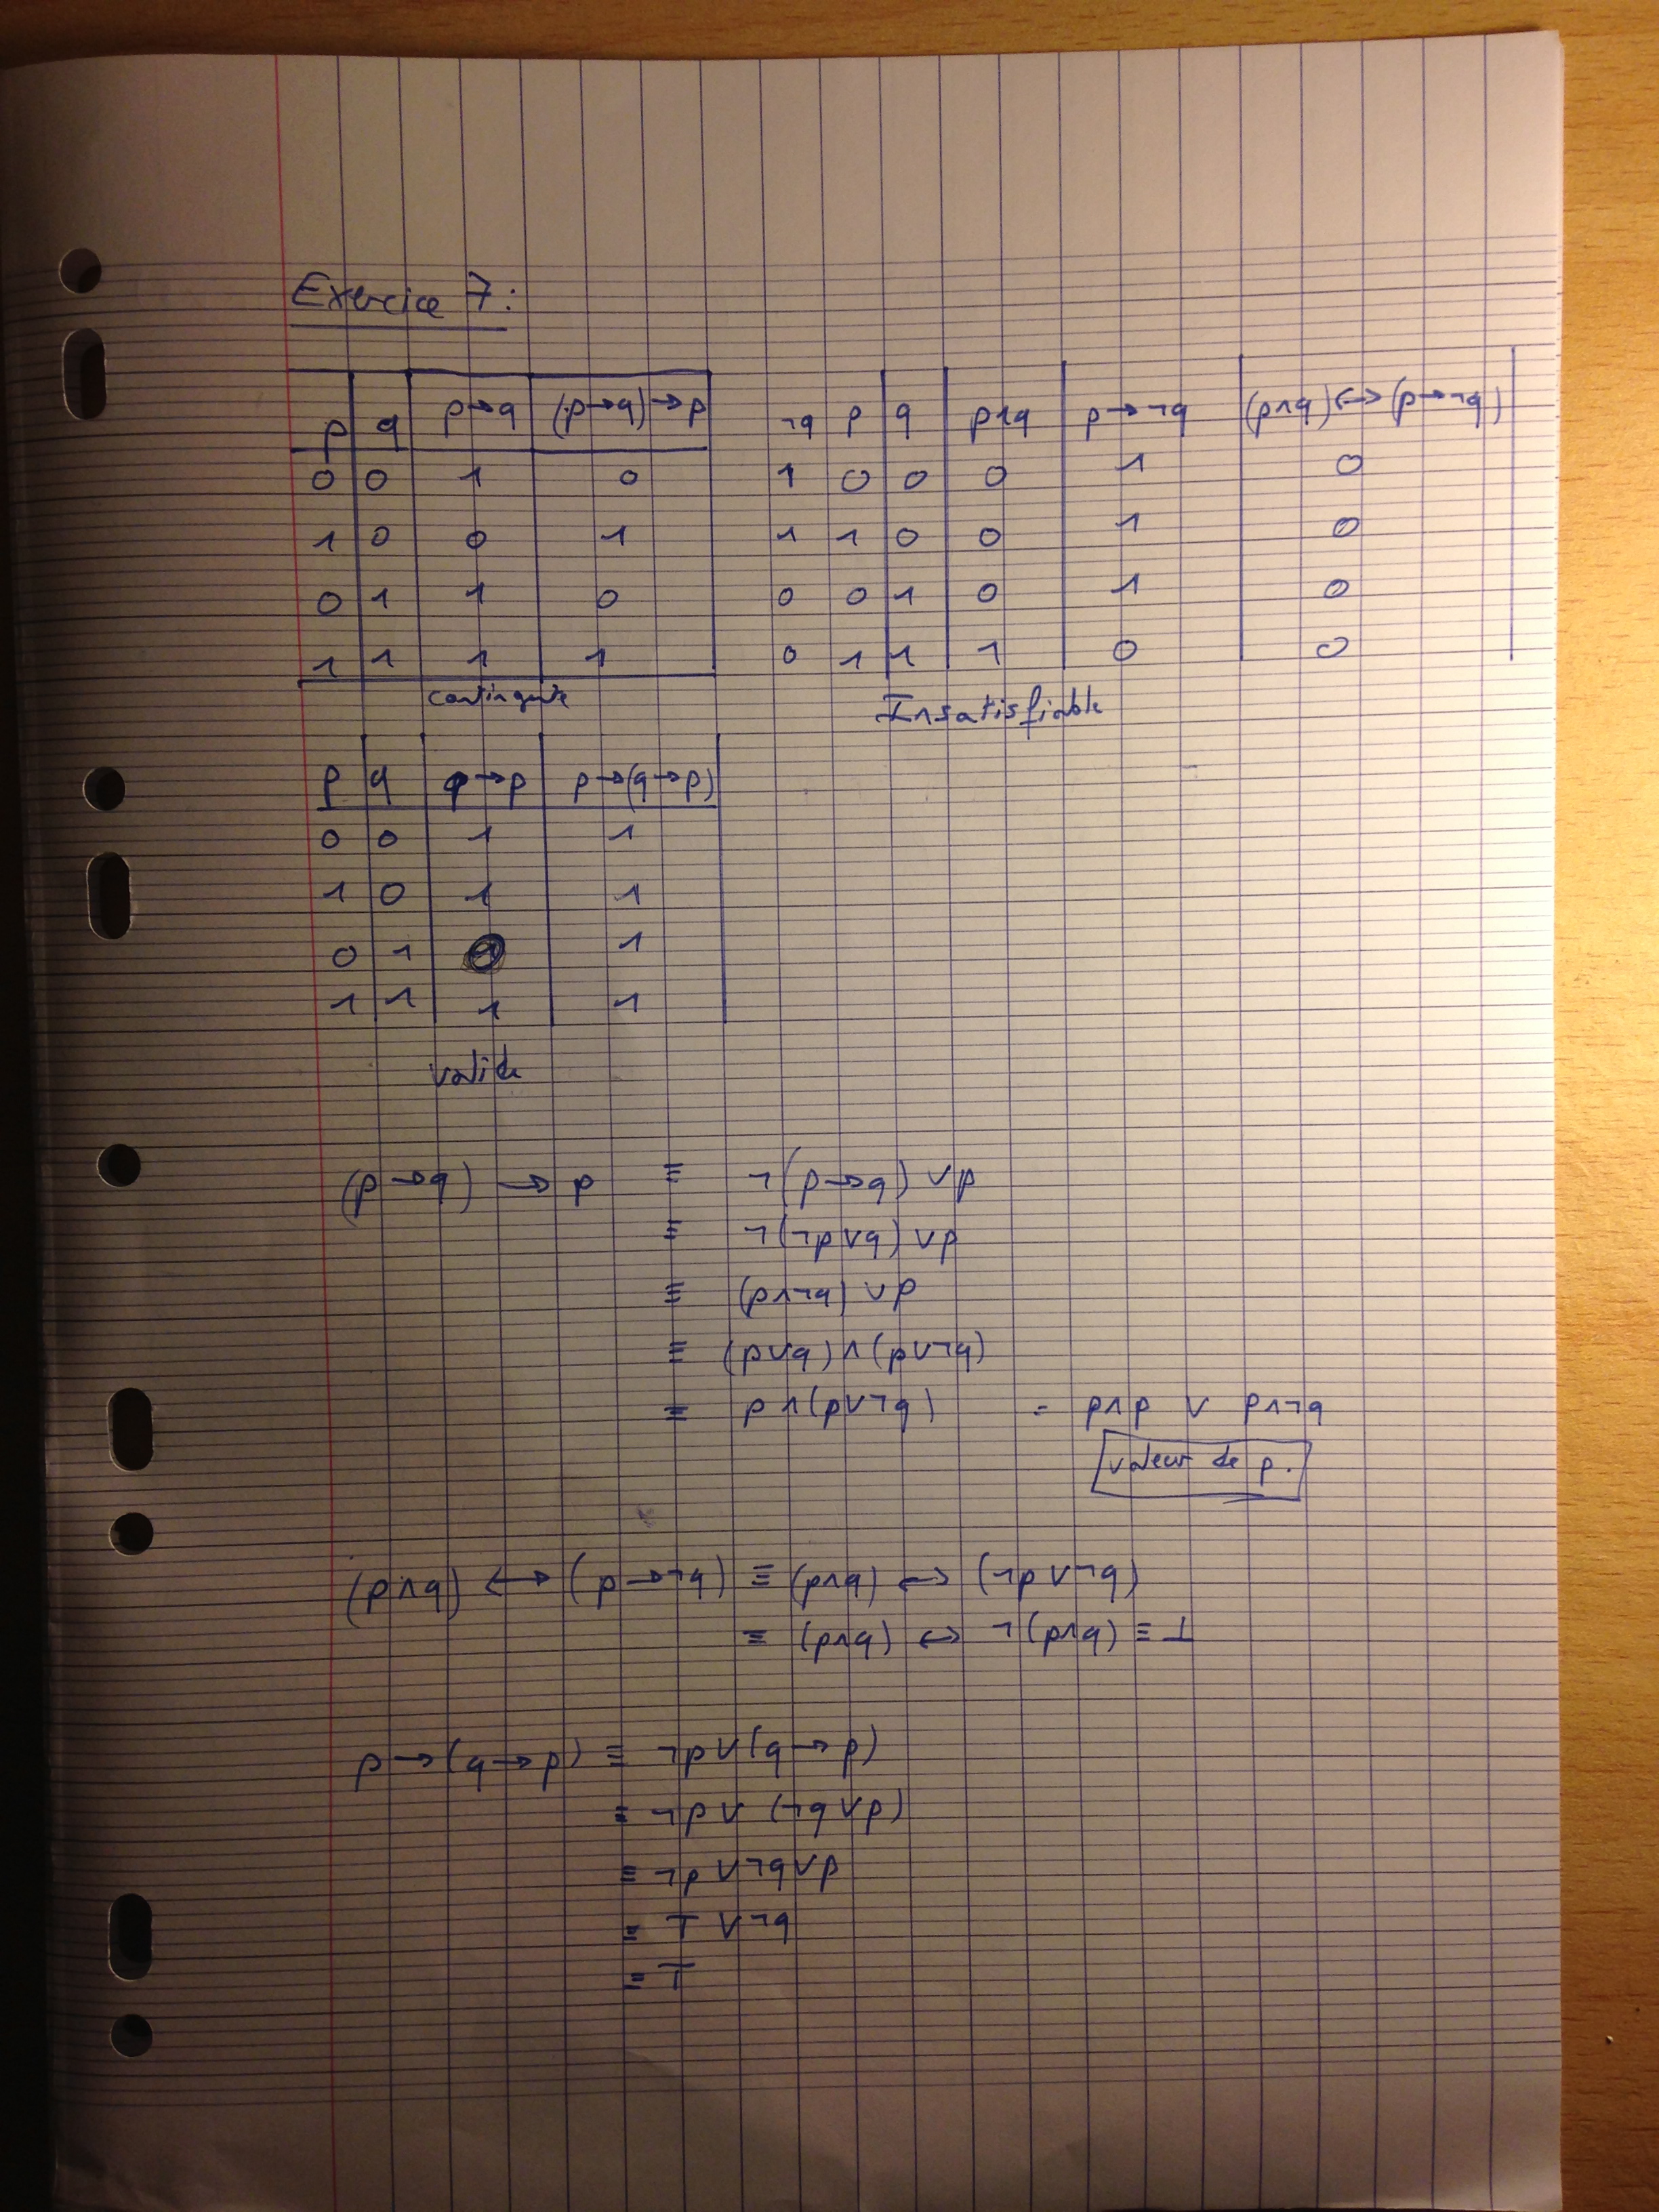 Exercice 7:
p q p→q (p→q)→p
0 0 1 0
1 0 0 1
0 1 1 0
1 1 1 1
contingente
¬q p q p∧q p→¬q (p∧q)↔(p→¬q)
1 0 0 0 1 0
1 1 0 0 1 0
0 0 1 0 1 0
0 1 1 1 0 0
Insatisfiable
p q q→p p→(q→p)
0 0 1 1
1 0 1 1
0 1 1
1 1 1 1
valide
(p→q)→p ≡ ¬(p→q)∨p
≡ ¬(¬p∨q)∨p
≡ (p∧¬q)∨p
≡ (p∨q)∧(p∨¬q)
≡ p∧(p∨¬q) = p∧p ∨ p∧¬q
valeur de p.
(p∧q)↔(p→¬q) ≡ (p∧q)↔(¬p∨¬q)
≡ (p∧q)↔¬(p∧q) ≡ ⊥
p→(q→p) ≡ ¬p∨(q→p)
≡ ¬p∨(¬q∨p)
≡ ¬p∨¬q∨p
≡ T∨¬q
≡ T